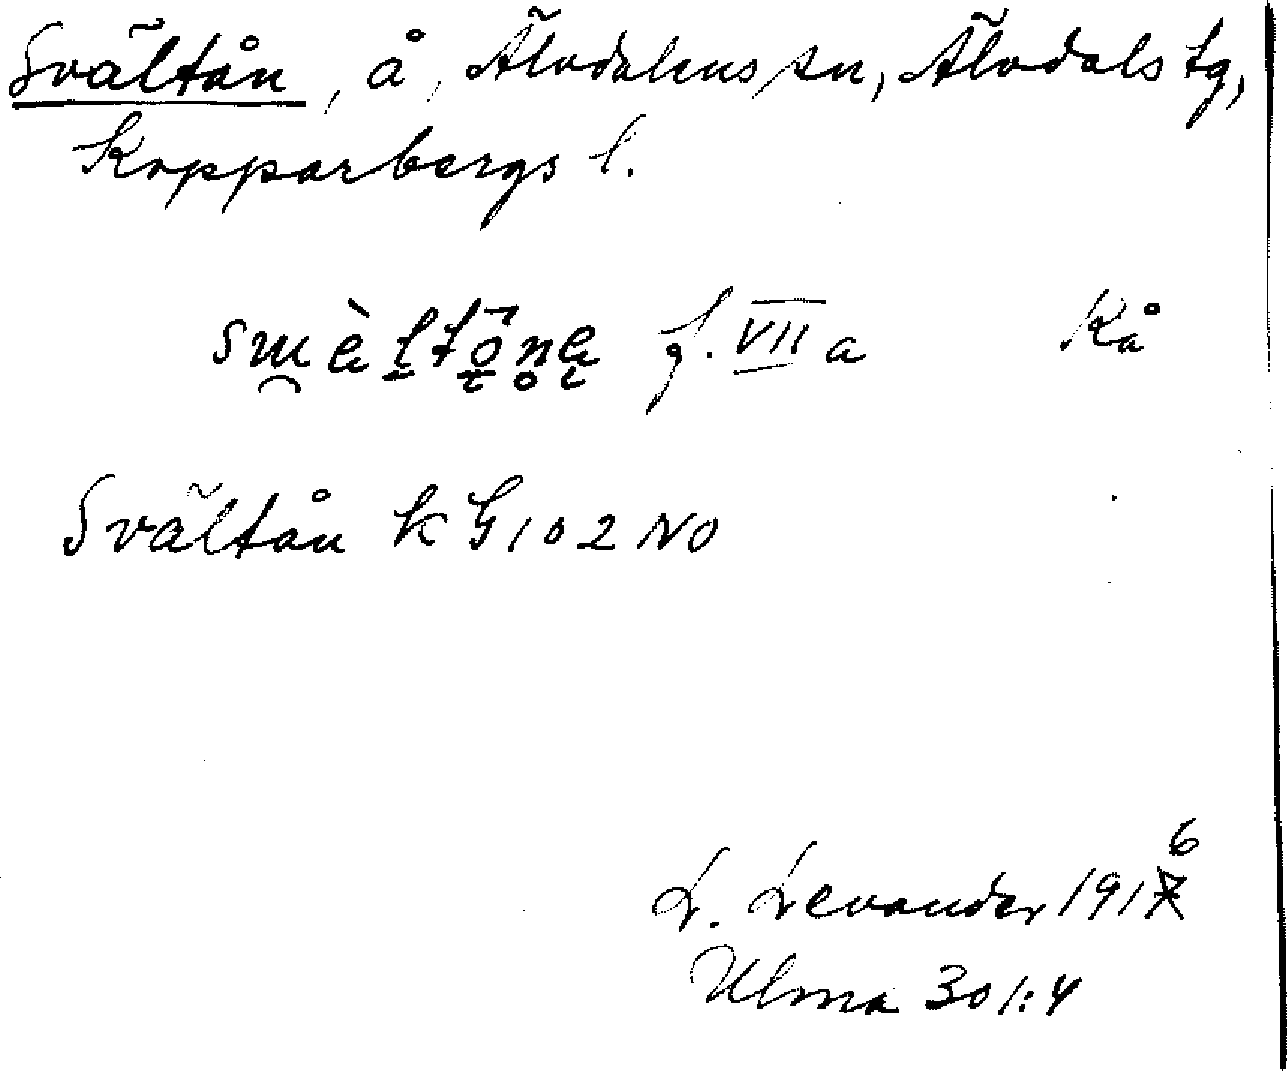 Svältån, å, Älvdalens sn, Älvdals tg,
Kopparbergs l.
f. VII a Kå
Svältån k G 102 NO
L. Levander 1916
Ulma 301:4